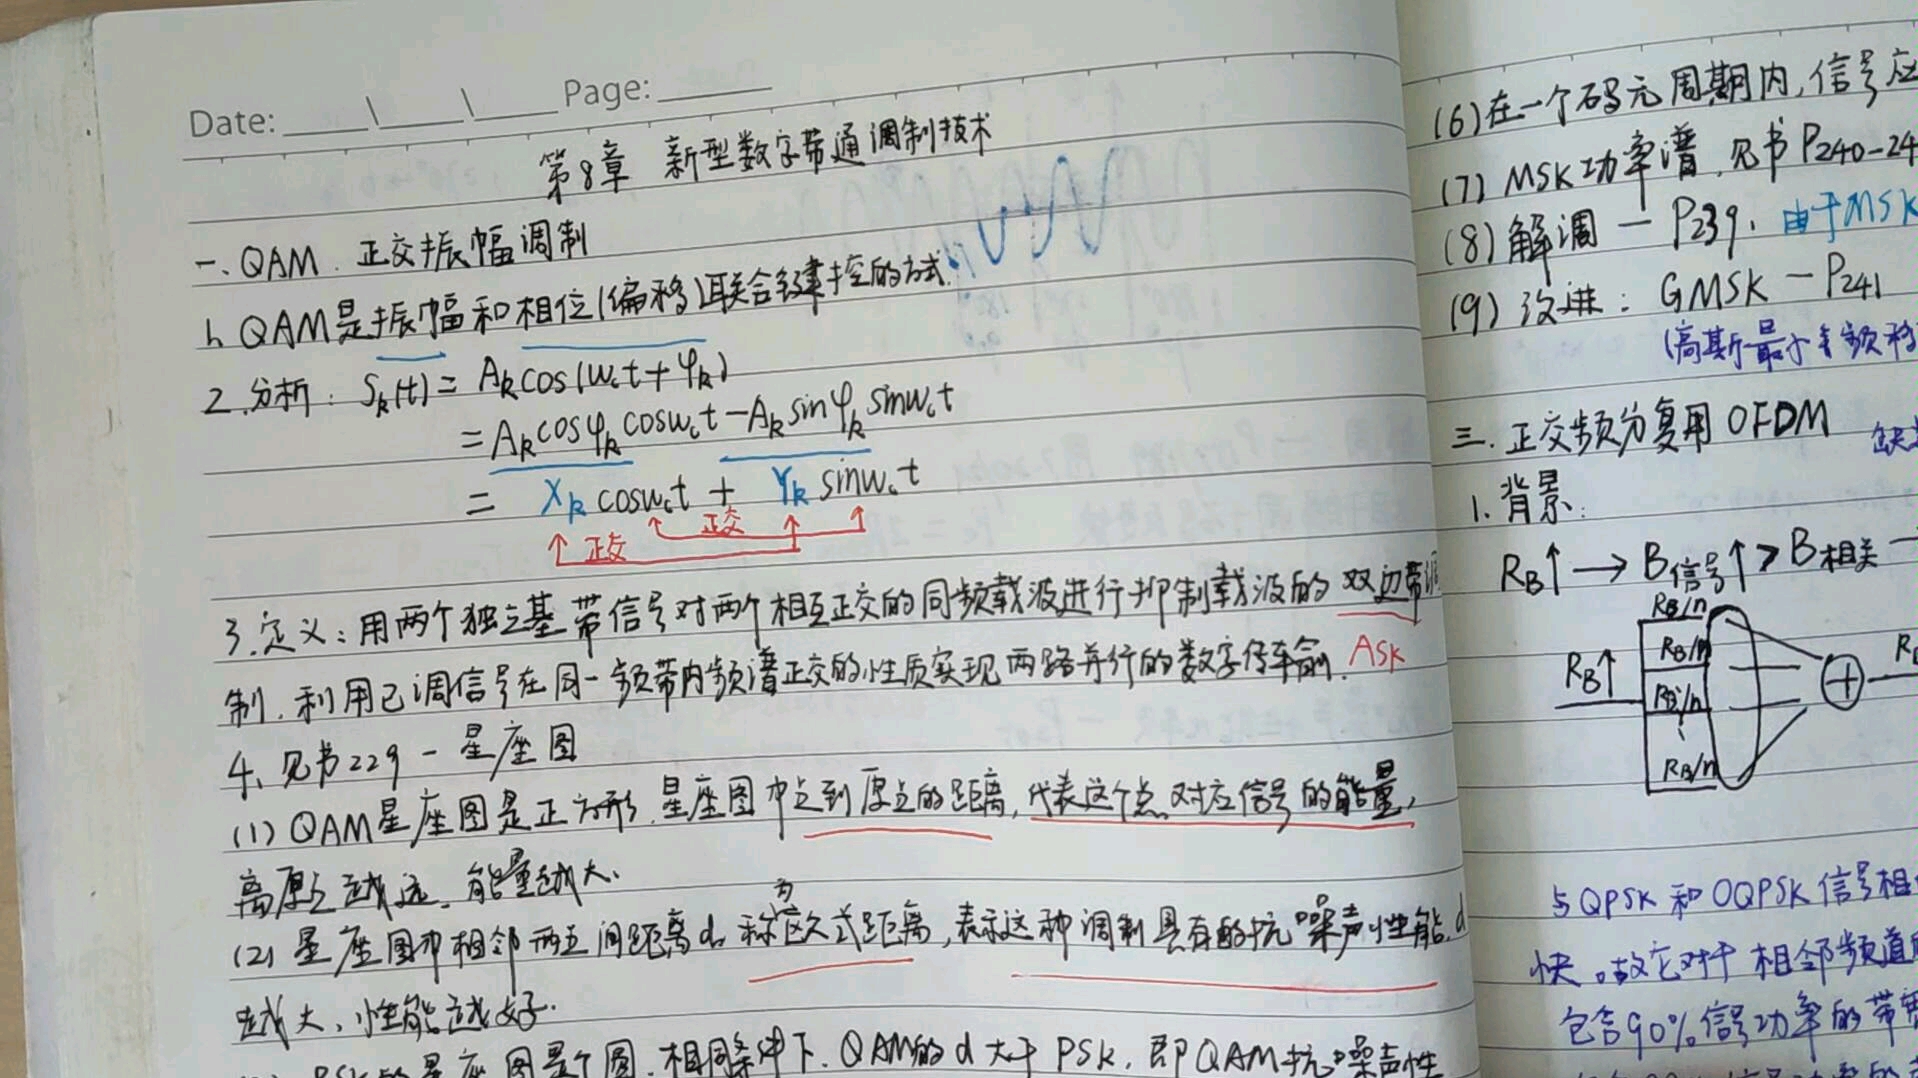 Date: ____\____\____ Page: ____
第8章 新型数字带通调制技术
一、QAM. 正交振幅调制
1、QAM是振幅和相位(偏移)联合键控的方式.
2.分析: Sk(t) = Akcos(wct+φk)
= Akcosφkcoswct - Aksinφk sinwct
= Xk coswct + Yk sinwct
正交
正交
3.定义:用两个独立基带信号对两个相互正交的同频载波进行抑制载波的双边带调
制.利用已调信号在同一频带内频谱正交的性质实现两路并行的数字传输. ASK
4、见书229-星座图
(1)QAM星座图是正方形.星座图中点到原点的距离,代表这个点对应信号的能量,
离原点越远.能量越大、
为
(2)星座图中相邻两点间距离d.称欧式距离,表示这种调制具有的抗噪声性能.d
越大、性能越好.
PSK的星座图是个圆.相同条件下.QAM的d大于PSK.即QAM抗噪声性
(6)在一个码元周期内,信号应
(7)MSK功率谱.见书P240-24
(8)解调-P239. 由于MSK
(9)改进: GMSK-P241
(高斯最小频移
三.正交频分复用OFDM
1.背景:
RB↑→B信号↑>B相关
RB/n
RB/n
RB↑
RB/n
RB/n
与QPSK和OQPSK信号相
快。故它对于相邻频道
包含90%信号功率的带宽